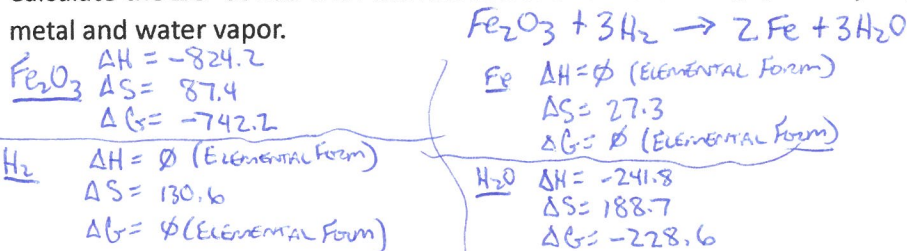 metal and water vapor.
Fe₂O₃ + 3H₂ → 2 Fe + 3H₂O
Fe₂O₃ ΔH = -824.2
ΔS = 87.4
ΔG = -742.2
Fe ΔH = ∅ (ELEMENTAL FORM)
ΔS = 27.3
ΔG = ∅ (ELEMENTAL FORM)
H₂ ΔH = ∅ (ELEMENTAL FORM)
ΔS = 130.6
ΔG = ∅ (ELEMENTAL FORM)
H₂O ΔH = -241.8
ΔS = 188.7
ΔG = -228.6